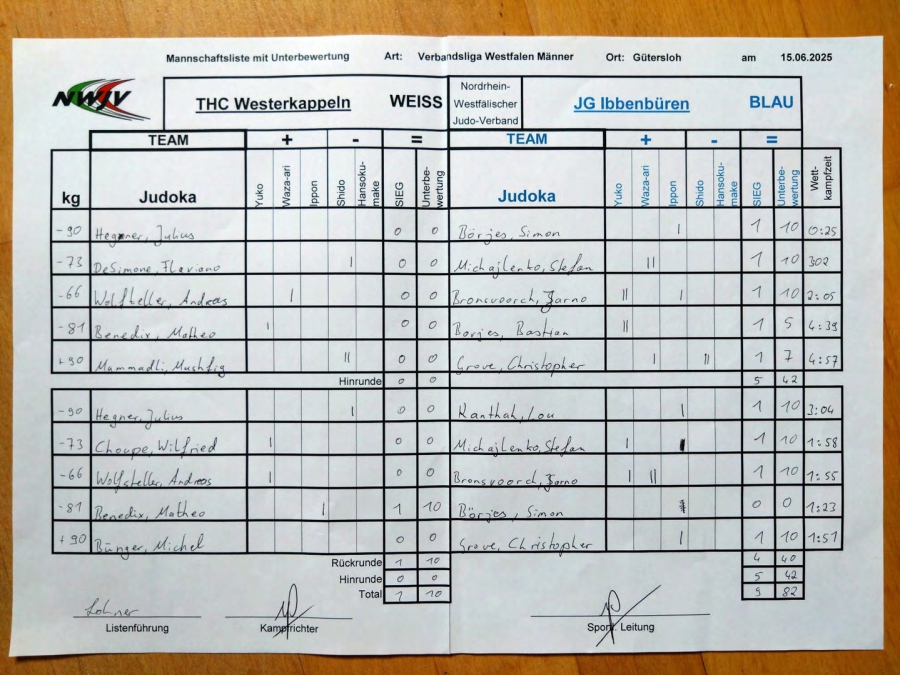 Mannschaftsliste mit Unterbewertung Art: Verbandsliga Westfalen Männer Ort: Gütersloh am 15.06.2025
NWJV THC Westerkappeln WEISS Nordrhein-Westfälischer Judo-Verband JG Ibbenbüren BLAU
TEAM + - = TEAM + - =
kg Judoka Yuko Waza-ari Ippon Shido Hansoku-make SIEG Unterbe-wertung Judoka Yuko Waza-ari Ippon Shido Hansoku-make SIEG Unterbe-wertung Wett-kampfzeit
-90 Hegner, Julius 0 0 Börjes, Simon | 1 10 0:25
-73 DeSimone, Flaviano | 0 0 Michajlenko, Stefan || 1 10 302
-66 Wolfsteller, Andreas | 0 0 Bronsvoorch, Jarno || | 1 10 2:05
-81 Benedix, Matheo | 0 0 Borjes, Bastian || 1 5 4:39
+90 Mammadli, Mushfig || 0 0 Grove, Christopher | || 1 7 4:57
Hinrunde 0 0 5 42
-90 Hegner, Julius | 0 0 Kanthak, Lou | 1 10 3:04
-73 Choupe, Wilfried | 0 0 Michajlenko, Stefan | | 1 10 1:58
-66 Wolfsteller, Andreas | 0 0 Bronsvoorch, Jarno | || 1 10 1:55
-81 Benedix, Matheo | 1 10 Börjes, Simon 0 0 1:23
+90 Bünger, Michel 0 0 Grove, Christopher | 1 10 1:51
Rückrunde 1 10 4 40
Hinrunde 0 0 5 42
Total 1 10 9 82
Lohner
Listenführung Kampfrichter Sportl. Leitung